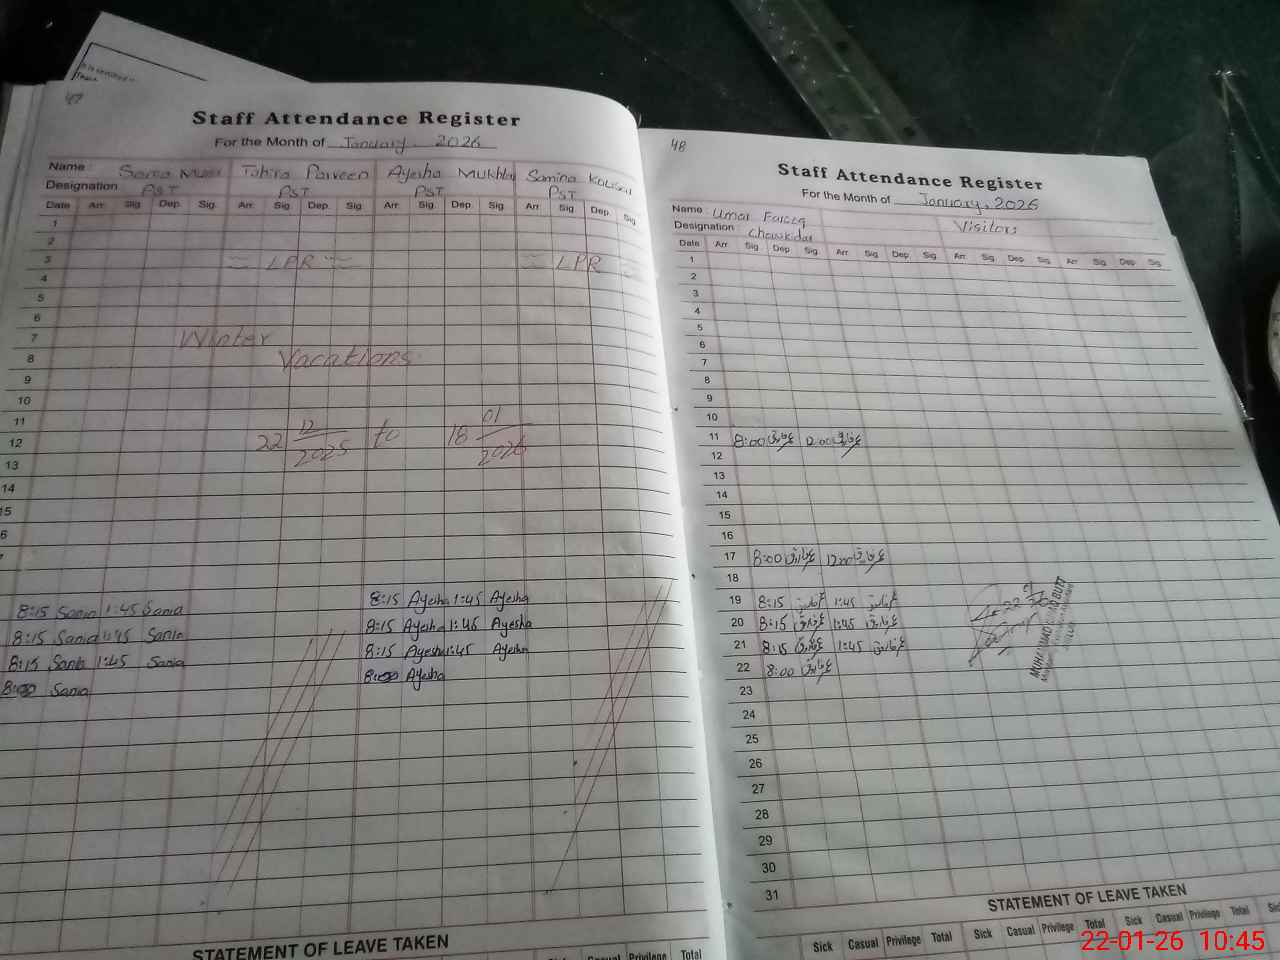 47
Staff Attendance Register
For the Month of January, 2026
Name : Sania Tahira Parveen Ayesha Mukhtar Samina Kousar
Designation PST PST PST PST
Date Arr. Sig. Dep. Sig. Arr. Sig. Dep. Sig. Arr. Sig. Dep. Sig. Arr. Sig. Dep. Sig.
1
2
3 LPR LPR
4
5
6
7 Winter
8 Vacations
9
10
11
12 22 12/2025 to 18 01/2026
13
14
15
6
7
8:15 Sania 1:45 Sania 8:15 Ayesha 1:45 Ayesha
8:15 Sania 1:45 Sania 8:15 Ayesha 1:45 Ayesha
8:15 Sania 1:45 Sania 8:15 Ayesha 1:45 Ayesha
8:00 Sania 8:00 Ayesha
STATEMENT OF LEAVE TAKEN
Sick Casual Privilege Total
48
Staff Attendance Register
For the Month of January, 2026
Name : Umar Farooq Visitors
Designation : Chowkidar
Date Arr. Sig. Dep. Sig. Arr. Sig. Dep. Sig. Arr. Sig. Dep. Sig. Arr. Sig. Dep. Sig.
1
2
3
4
5
6
7
8
9
10
11 8:00 عمرفاروق 12:00 عمرفاروق
12
13
14
15
16
17 8:00 عمرفاروق 12:00 عمرفاروق
18
19 8:15 عمرفاروق 1:45 عمرفاروق
20 8:15 عمرفاروق 1:45 عمرفاروق
21 8:15 عمرفاروق 1:45 عمرفاروق
22 8:00 عمرفاروق
23
24
25
26
27
28
29
30
31
STATEMENT OF LEAVE TAKEN
Sick Casual Privilege Total Sick Casual Privilege Total
22-01-26 10:45